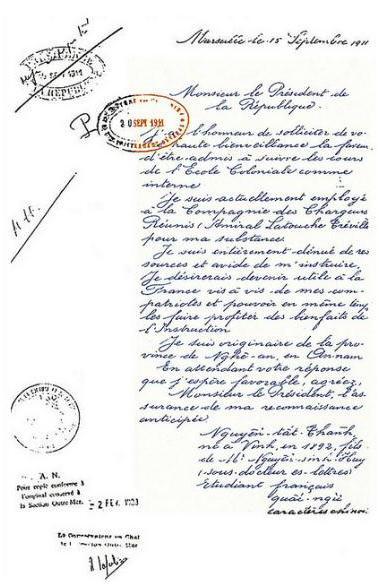 Marseille le 15 Septembre 1911
Monsieur le Président de
la République.
20 SEPT 1911
J'ai l'honneur de solliciter de vo-
haute bienveillance la faveur
d'être admis à suivre les cours
de l'Ecole Coloniale comme
interne
Je suis actuellement employé
à la Compagnie des Chargeurs
Réunis (Amiral Latouche Tréville
pour ma substance
Je suis entièrement dénué de res
sources et avide de m'instruire.
Je désirerais devenir utile à la
France vis à vis de mes com-
patriotes et pouvoir en même temp
les faire profiter des bienfaits de
l'Instruction
Je suis originaire de la pro-
vince de Nghê-an, en Annam
En attendant votre réponse
que j'espère favorable, agréez,
Monsieur le Président, l'as-
surance de ma reconnaissance
anticipée
Nguyễn tất Thành,
né à Vinh, en 1892, fils
de Mr Nguyễn sinh Huy
(sous-docteur ès-lettres)
Etudiant français
quốc-ngữ
caractères chinoi
A. N.
Pour copie conforme à
l'original conservé à
la Section Outre-Mer.
- 2 FEV. 1983
Le Conservateur en Chef
de la Section Outre-Mer